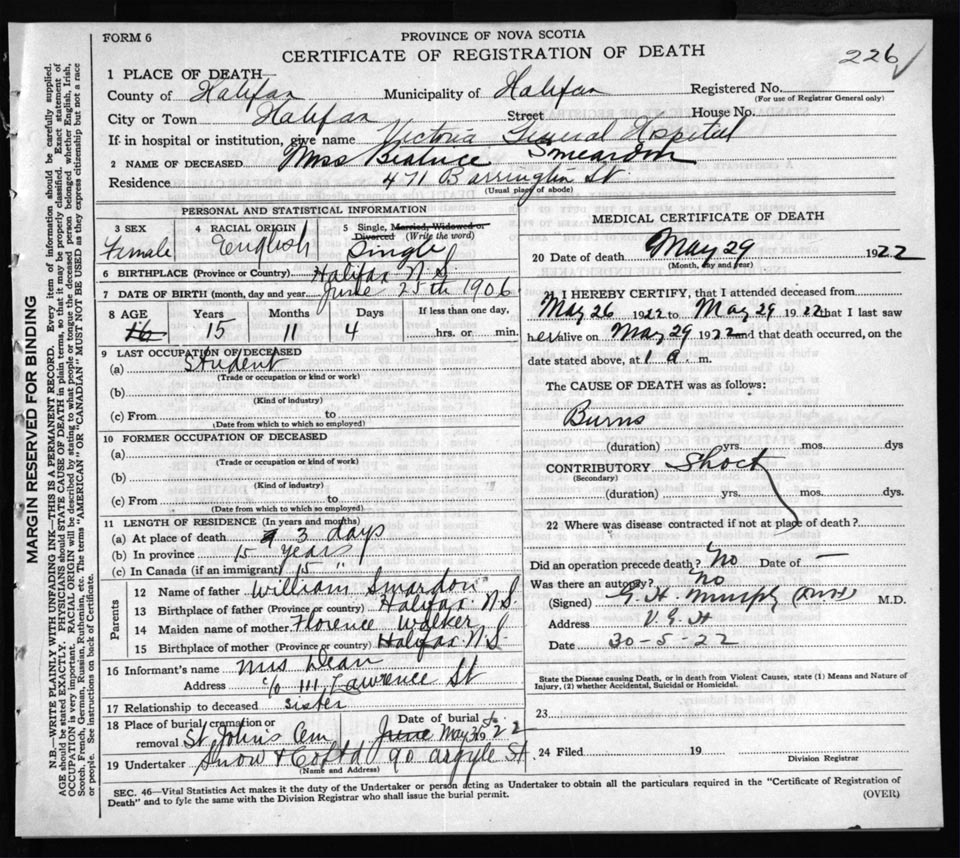 FORM 6
PROVINCE OF NOVA SCOTIA
CERTIFICATE OF REGISTRATION OF DEATH
226
1 PLACE OF DEATH—
County of Halifax Municipality of Halifax Registered No.
(For use of Registrar General only)
City or Town Halifax Street House No.
If in hospital or institution, give name Victoria General Hospital
2 NAME OF DECEASED Miss Beatrice Smeardon
Residence 471 Barrington St
(Usual place of abode)
PERSONAL AND STATISTICAL INFORMATION
3 SEX 4 RACIAL ORIGIN 5 Single, Married, Widowed or Divorced (Write the word)
Female English Single
6 BIRTHPLACE (Province or Country) Halifax N.S.
7 DATE OF BIRTH (month, day and year) June 25th 1906
8 AGE Years Months Days If less than one day,
16 15 11 4 hrs. or min.
9 LAST OCCUPATION OF DECEASED
(a) Student
(Trade or occupation or kind or work)
(b)
(Kind of industry)
(c) From to
(Date from which to which so employed)
10 FORMER OCCUPATION OF DECEASED
(a)
(Trade or occupation or kind of work)
(b)
(Kind of industry)
(c) From to
(Date from which to which so employed)
11 LENGTH OF RESIDENCE (In years and months)
(a) At place of death 3 days
(b) In province 15 years
(c) In Canada (if an immigrant) 15 "
Parents
12 Name of father William Smardon
13 Birthplace of father (Province or country) Halifax. N.S.
14 Maiden name of mother Florence Walker
15 Birthplace of mother (Province or country) Halifax N.S.
16 Informant's name Mrs Dean
Address c/o 111, Lawrence St
17 Relationship to deceased sister
18 Place of burial cremation or removal St John's Cem Date of burial June May 30 22
19 Undertaker Snow & Co Ltd 90 Argyle St
(Name and Address)
MEDICAL CERTIFICATE OF DEATH
20 Date of death May 29 1922
(Month, day and year)
21 I HEREBY CERTIFY, that I attended deceased from
May 26 1922 to May 29 1922 that I last saw
her alive on May 29 1922 and that death occurred, on the
date stated above, at 1 a. m.
The CAUSE OF DEATH was as follows:
Burns
(duration) yrs. mos. dys
CONTRIBUTORY Shock
(Secondary)
(duration) yrs. mos. dys.
22 Where was disease contracted if not at place of death?
Did an operation precede death? No Date of —
Was there an autopsy? No
(Signed) G. H. Murphy M.D.
Address V.G.H
Date 30-5-22
State the Disease causing Death, or in death from Violent Causes, state (1) Means and Nature of
Injury, (2) whether Accidental, Suicidal or Homicidal.
23
24 Filed 19
Division Registrar
SEC. 46—Vital Statistics Act makes it the duty of the Undertaker or person acting as Undertaker to obtain all the particulars required in the "Certificate of Registration of
Death" and to fyle the same with the Division Registrar who shall issue the burial permit.
(OVER)
MARGIN RESERVED FOR BINDING
N.B.—WRITE PLAINLY WITH UNFADING INK—THIS IS A PERMANENT RECORD. Every item of information should be carefully supplied.
AGE should be stated EXACTLY. PHYSICIANS should STATE CAUSE OF DEATH in plain terms, so that it may be properly classified. Exact statement of
OCCUPATION is very important. RACIAL ORIGIN will be described by stating to what people or tongue the deceased person belonged, whether English, Irish,
Scotch, French, German, Russian, Ruthenian, etc. The terms "AMERICAN" OR "CANADIAN" MUST NOT BE USED as they express citizenship but not a race
or people. See instructions on back of Certificate.